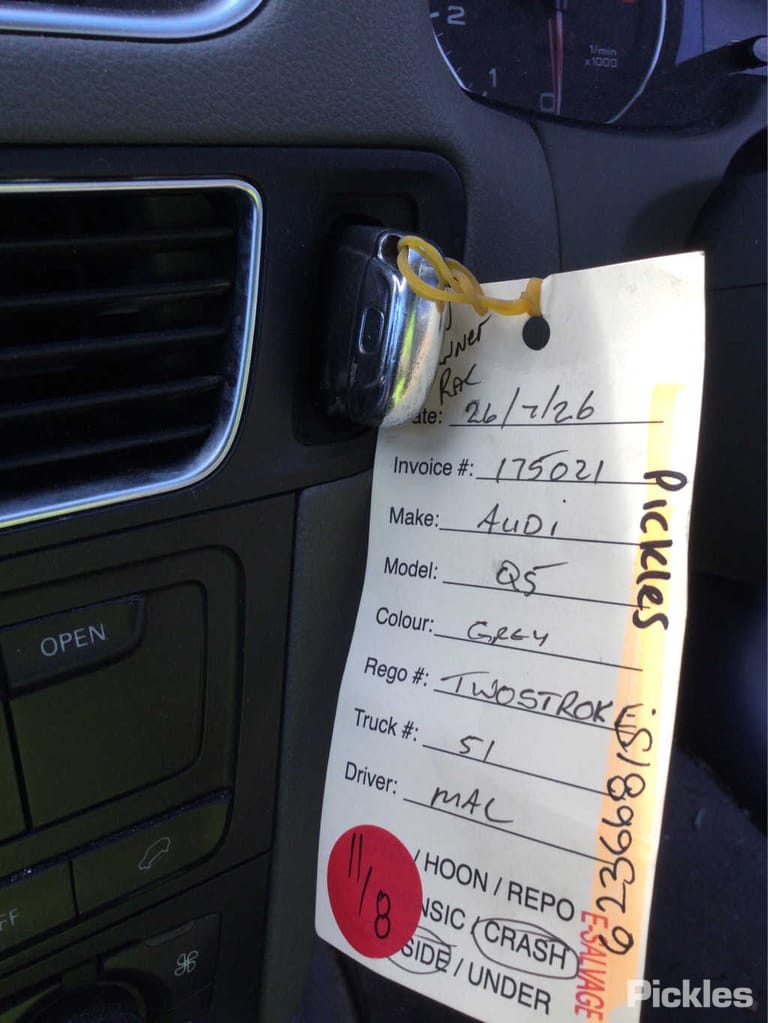 2
1/min
x1000
1
0
WNER
RAC
ate: 26/7/26
Invoice #: 175021
Make: AUDi
Model: Q5
Colour: GREY
Rego #: TWOSTROKE
Truck #: 51
Driver: MAC
/ HOON / REPO
NSIC / CRASH
SIDE / UNDER
11/8
Pickles
E-SALVAGE
OPEN
FF
Pickles